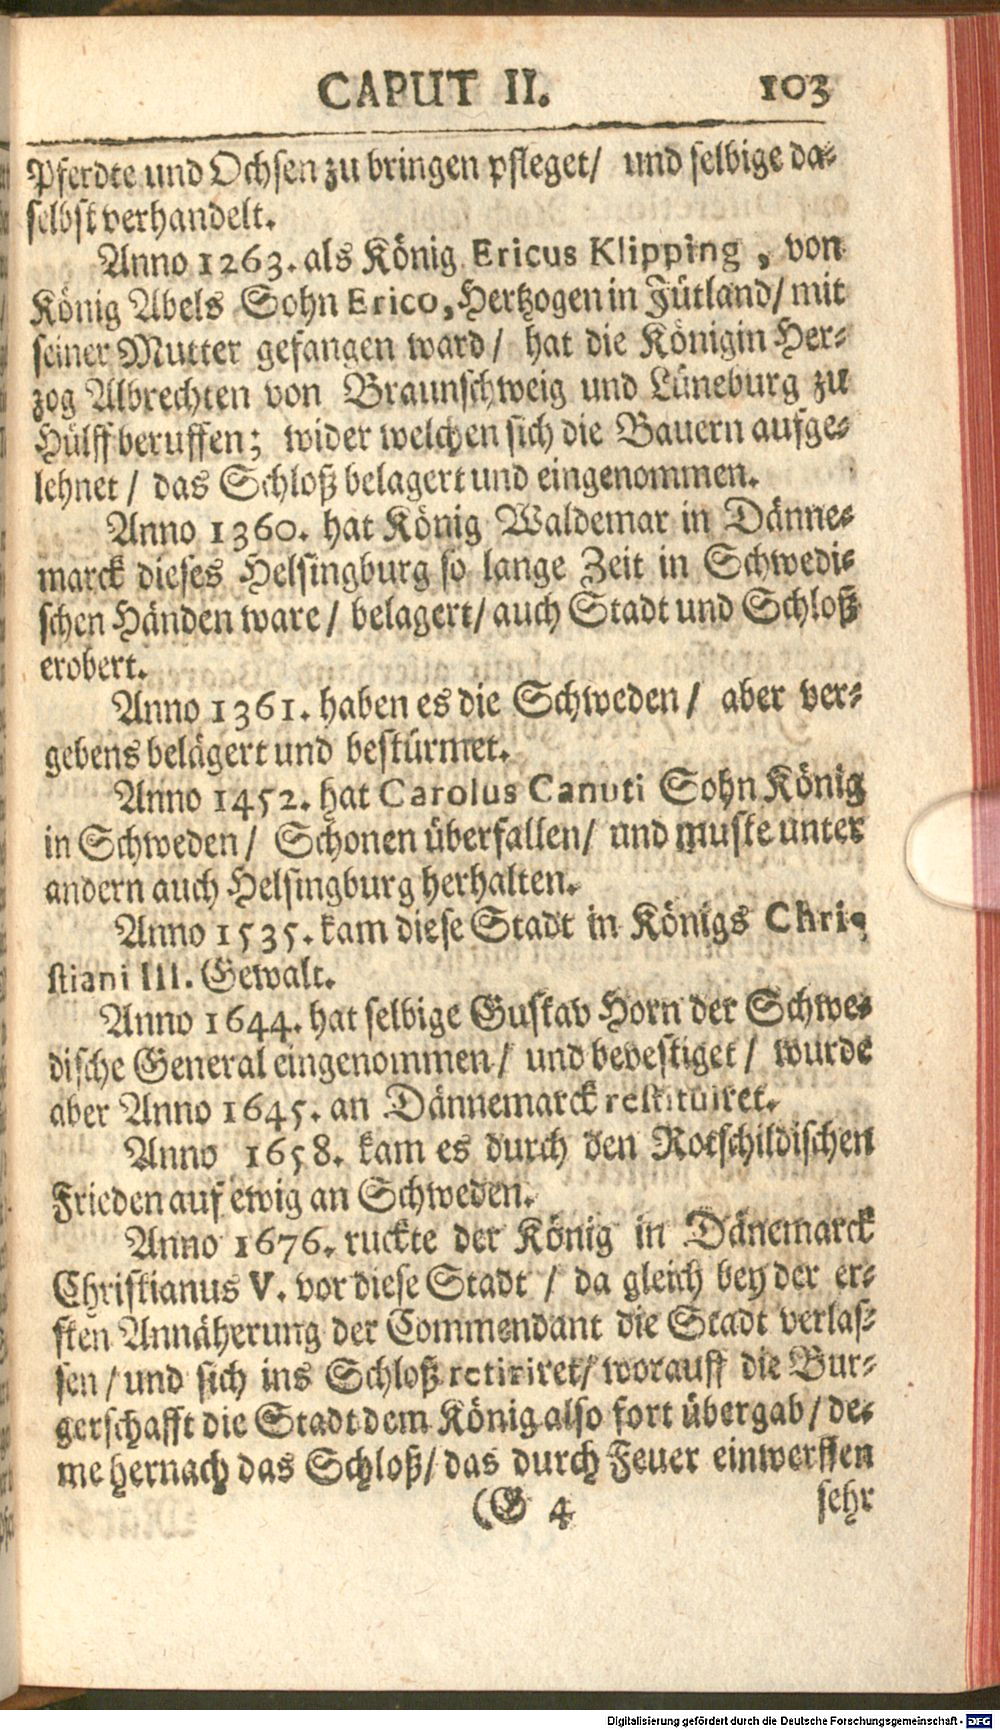 CAPUT II. 103
Pferdte und Ochsen zu bringen pfleget/ und selbige da-
selbst verhandelt.
Anno 1263. als König Ericus Klipping, von
König Abels Sohn Erico, Hertzogen in Jütland/ mit
seiner Mutter gefangen ward/ hat die Königin Her-
zog Albrechten von Braunschweig und Lüneburg zu
Hülff beruffen; wider welchen sich die Bauern aufge-
lehnet/ das Schloß belagert und eingenommen.
Anno 1360. hat König Waldemar in Dänne-
marck dieses Helsingburg so lange Zeit in Schwedi-
schen Händen ware/ belagert/ auch Stadt und Schloß
erobert.
Anno 1361. haben es die Schweden/ aber ver-
gebens belägert und bestürmet.
Anno 1452. hat Carolus Canuti Sohn König
in Schweden/ Schonen überfallen/ und muste unter
andern auch Helsingburg herhalten.
Anno 1535. kam diese Stadt in Königs Chri-
stiani III. Gewalt.
Anno 1644. hat selbige Gustav Horn der Schwe-
dische General eingenommen/ und bevestiget/ wurde
aber Anno 1645. an Dännemarck restituiret.
Anno 1658. kam es durch den Rotschildischen
Frieden auf ewig an Schweden.
Anno 1676. ruckte der König in Dänemarck
Christianus V. vor diese Stadt/ da gleich bey der er-
sten Annäherung der Commendant die Stadt verlas-
sen/ und sich ins Schloß retiriret/ worauff die Bur-
gerschafft die Stadt dem König also fort übergab/ de-
me hernach das Schloß/ das durch Feuer einwerffen
(G 4 sehr
Digitalisierung gefördert durch die Deutsche Forschungsgemeinschaft - DFG